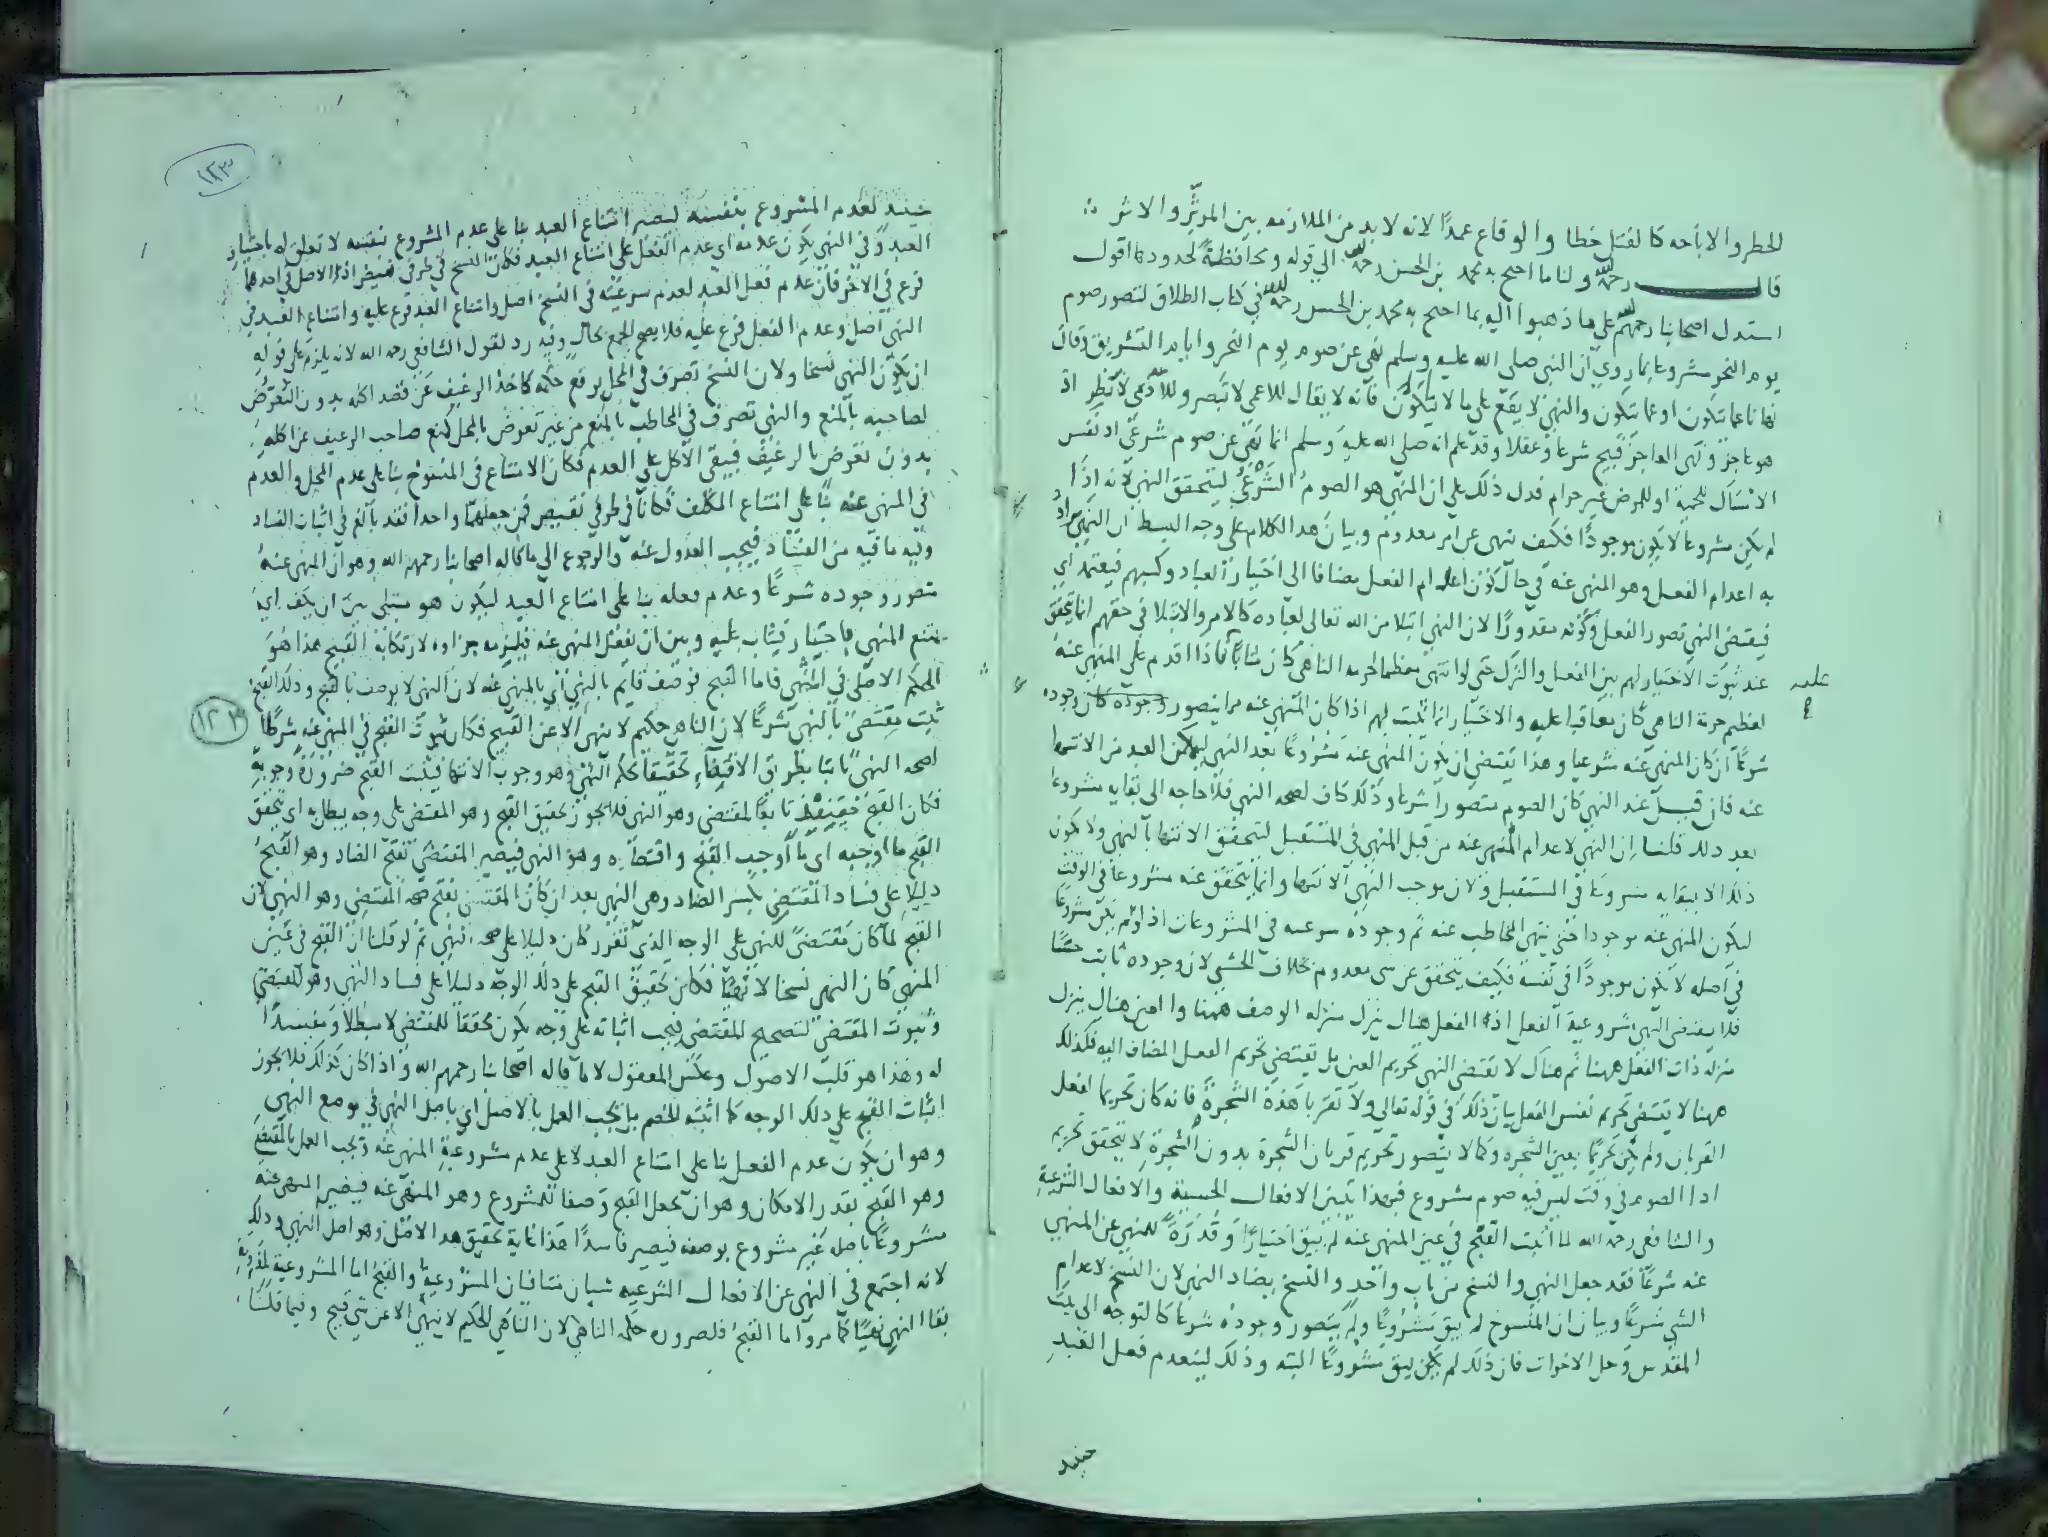 للحظر والاباحه كالقتل خطا والوقاع عمدًا لانه لا بد من الملازمه بين المؤثر والاثر
قال رحمه الله ولنا ما احتج به محمد بن الحسن رحمه الله الي قوله ومحافظةً لحدودها اقول
استدل اصحابنا رحمهم الله علي ما ذهبوا اليه بما احتج به محمد بن الحسن رحمه الله في كتاب الطلاق لتصور صوم
يوم النحر مشروعا بما روي ان النبي صلي الله عليه وسلم نهي عن صوم يوم النحر وايام التشريق وقال
نهانا عما تتكون او عما تتكون والنهي لا يقع علي ما لا يتكون فانه لا يقال للاعمي لا تبصر وللآدمي لا تطر اذ
هو عاجز ونهي العاجز قبيح شرعا وعقلا وقد علم انه صلي الله عليه وسلم انما نهي عن صوم شرعي اذ نفس
الامساك للحمية او للمرض غير حرام فدل ذلك علي ان المنهي هو الصوم الشرعي ليتحقق النهي لانه اذا
لم يكن مشروعا لا يكون موجودًا فكيف ينهي عن امر معدوم وبيان هذا الكلام علي وجه البسط ان النهي يراد
به اعدام الفعل وهو المنهي عنه في حال كون اعدام الفعل مضافا الي اختيار العباد وكسبهم فيعتمد اي
فيقتضي النهي تصور الفعل وكونه مقدورًا لان النهي ابتلا من الله تعالي لعباده كالامر والابتلا في حقهم انما يتحقق
عند ثبوت الاختيار لهم بين الفعل والترك حتي لو انتهي معظما لحرمه الناهي كان مثابًا فاذا اقدم علي المنهي عنه
لعظيم حرمة الناهي كان معاقبا عليه والاختيار انما يثبت لهم اذا كان المنهي عنه مما يتصور وجوده كان وجوده
علمه
شرعًا ان كان المنهي عنه شرعيا وهذا يقتضي ان يكون المنهي عنه مشروعًا بعد النهي ليمكن العبد من الانتها
عنه فان قيل عند النهي كان الصوم متصورًا شرعا وذلك كاف لصحه النهي فلا حاجه الي بقايه مشروعا
بعد ذلك قلنا ان النهي لاعدام المنهي عنه من قبل المنهي في المستقبل لتحقق الانتها بالنهي ولا يكون
ذلك الا ببقايه مشروعا في المستقبل ولان موجب النهي الانتها وانما يتحقق عنه مشروعا في الوقت
ليكون المنهي عنه موجودا حتي ينتهي المخاطب عنه ثم وجوده شرعيته في المشروعات اذ لو لم يكن مشروعًا
في اصله لا يكون موجودًا في نفسه فكيف يتحقق عن شي معدوم بخلاف الحسي لان وجوده ثابت حسًا
فلا يقتضي النهي مشروعية الفعل اذ الفعل هنالك ينزل منزله الوصف ههنا والعين هنالك ينزل
منزله ذات الفعل ههنا ثم هناك لا يقتضي النهي تحريم العين بل يقتضي تحريم الفعل المضاف اليه فكذلك
ههنا لا يقتضي تحريم نفس الفعل بيان ذلك في قوله تعالي ولا تقربا هذه الشجرة فانه كان تحريما لفعل
القربان ولم يكن تحريمًا بعين الشجره وكما لا يتصور تحريم قربان الشجرة بدون الشجرة لا يتحقق تحريم
ادا الصوم في وقت ليس فيه صوم مشروع فبهذا يتبين الافعال الحسية والافعال الشرعية
والشافعي رحمه الله لما اثبت القبح في عين المنهي عنه لم يبق اختيارًا وقدرةً للمنهي عن المنهي
عنه شرعًا فقد جعل النهي والنسخ من باب واحد والنسخ يضاد النهي لان النسخ لاعدام
الشي شرعًا وبيان ان المنسوخ لم يبق مشروعًا ولم يتصور وجوده شرعًا كالتوجه الي بيت
المقدس وحل الاخوات فان ذلك لم يكن ليبق مشروعًا البته وذلك لينعدم فعل العبد
حينيد
١٢٣
حينيد لعدم المشروع بنفسه ليصير امتناع العبد بنا علي عدم المشروع بنفسه لا تعلق له باختيار
العبد وفي النهي يكون عدمه اي عدم الفعل علي امتناع العبد فكان النسخ في طرفي نقيض اذ الاصل في احدهما
فرع في الاخر فان عدم فعل العبد لعدم شرعيته في النسخ اصل وامتناع العبد فرع عليه وامتناع العبد في
النهي اصل وعدم الفعل فرع عليه فلا يصح الجمع بحال وفيه رد لقول الشافعي رحمه الله لانه يلزم علي قوله
ان يكون النهي نسخا ولان النسخ تصرف في المحل يرفع حكمه كاخذ الرغيف عن قصد اكله بدون التعرض
لصاحبه بالمنع والنهي تصرف في المخاطب بالمنع من غير تعرض بالمحل كمنع صاحب الرغيف عن اكله
بدون تعرض بالرغيف فيبقي الاكل علي العدم فكان الامتناع في المنسوخ بنا علي عدم المحل والعدم
في المنهي عنه بنًا علي امتناع المكلف فكانا في طرفي نقيض فمن جعلهما واحدا فقد بالغ في اثبات الفساد
وفيه ما فيه من الفساد فيجب العدول عنه والرجوع الي ما قاله اصحابنا رحمهم الله وهو ان المنهي عنه
متصور وجوده شرعًا وعدم فعله بنا علي امتناع العبد ليكون هو مبتلي بين ان يكف اي
يمتنع المنهي باختيار فيثاب عليه وبين ان يفعل المنهي عنه فيلزمه جزاوه لارتكابه القبيح هذا هو
الحكم الاصلي في النهي فاما القبح فوصف قايم بالنهي اي بالمنهي عنه لان النهي لا يوصف بالقبح وذلك القبح
١٢٣
ثبت مقتضي بالنهي شرعًا لان الناهي حكيم لا ينهي الا عن القبيح فكان ثبوت القبح في المنهي عنه شرطًا
لصحه النهي ثابتا بطريق الاقتضاء تحقيقا لحكم النهي وهو وجوب الانتها فيثبت القبح ضرورة وجوبه
فكان القبح تابعًا لمقتضي وهو النهي فلا يجوز تحقيق القبح وهو المقتضي علي وجه يبطل به اي بتحقق
القبح ما اوجبه اي ما اوجب القبح واقتضاه وهو النهي فيصير المقتضي بفتح الضاد وهو القبح
دليلا علي فساد المقتضي بكسر الضاد وهي النهي بعد ان كان المقتضي بفتح صحه المقتضي وهو النهي لان
القبح لما كان مقتضيً للنهي علي الوجه الذي تقرر كان دليلا علي صحه النهي ثم لو قلنا ان القبح في عين
المنهي كان النهي نسخا لا نهيًا فكان تحقيق القبح علي ذلك الوجه دليلًا علي فساد النهي وهو المقتضي
وثبوت المقتضي لتصحيح المقتضي فيجب اثباته علي وجه يكون محققًا للمقتضي لا مبطلًا ومفسدًا
له وهذا هو قلب الاصول وعكس المعقول لا ما قاله اصحابنا رحمهم الله واذا كان كذلك فلا يجوز
اثبات القبح علي ذلك الوجه كما اثبته الخصم بل يجب العمل بالاصل اي باصل النهي في موضع النهي
وهو ان يكون عدم الفعل بنا علي امتناع العبد لا علي عدم مشروعية المنهي عنه ويجب العمل بالمقتضي
وهو القبح بقدر الامكان وهو ان يجعل القبح وصفا للمشروع وهو المنهي عنه فيصير المنهي عنه
مشروعًا باصله غير مشروع بوصفه فيصير فاسدًا هذا غاية تحقيق هذا الاصل وهو اصل النهي وذلك
لانه اجتمع في النهي عن الافعال الشرعيه شيان متنافيان المشروعية والقبح اما المشروعية لضرورة
بقا النهي نهيًا كما مر واما القبح فلضروره حكمة الناهي لان الناهي الحكيم لا ينهي الا عن شي قبيح وفيما قلنا